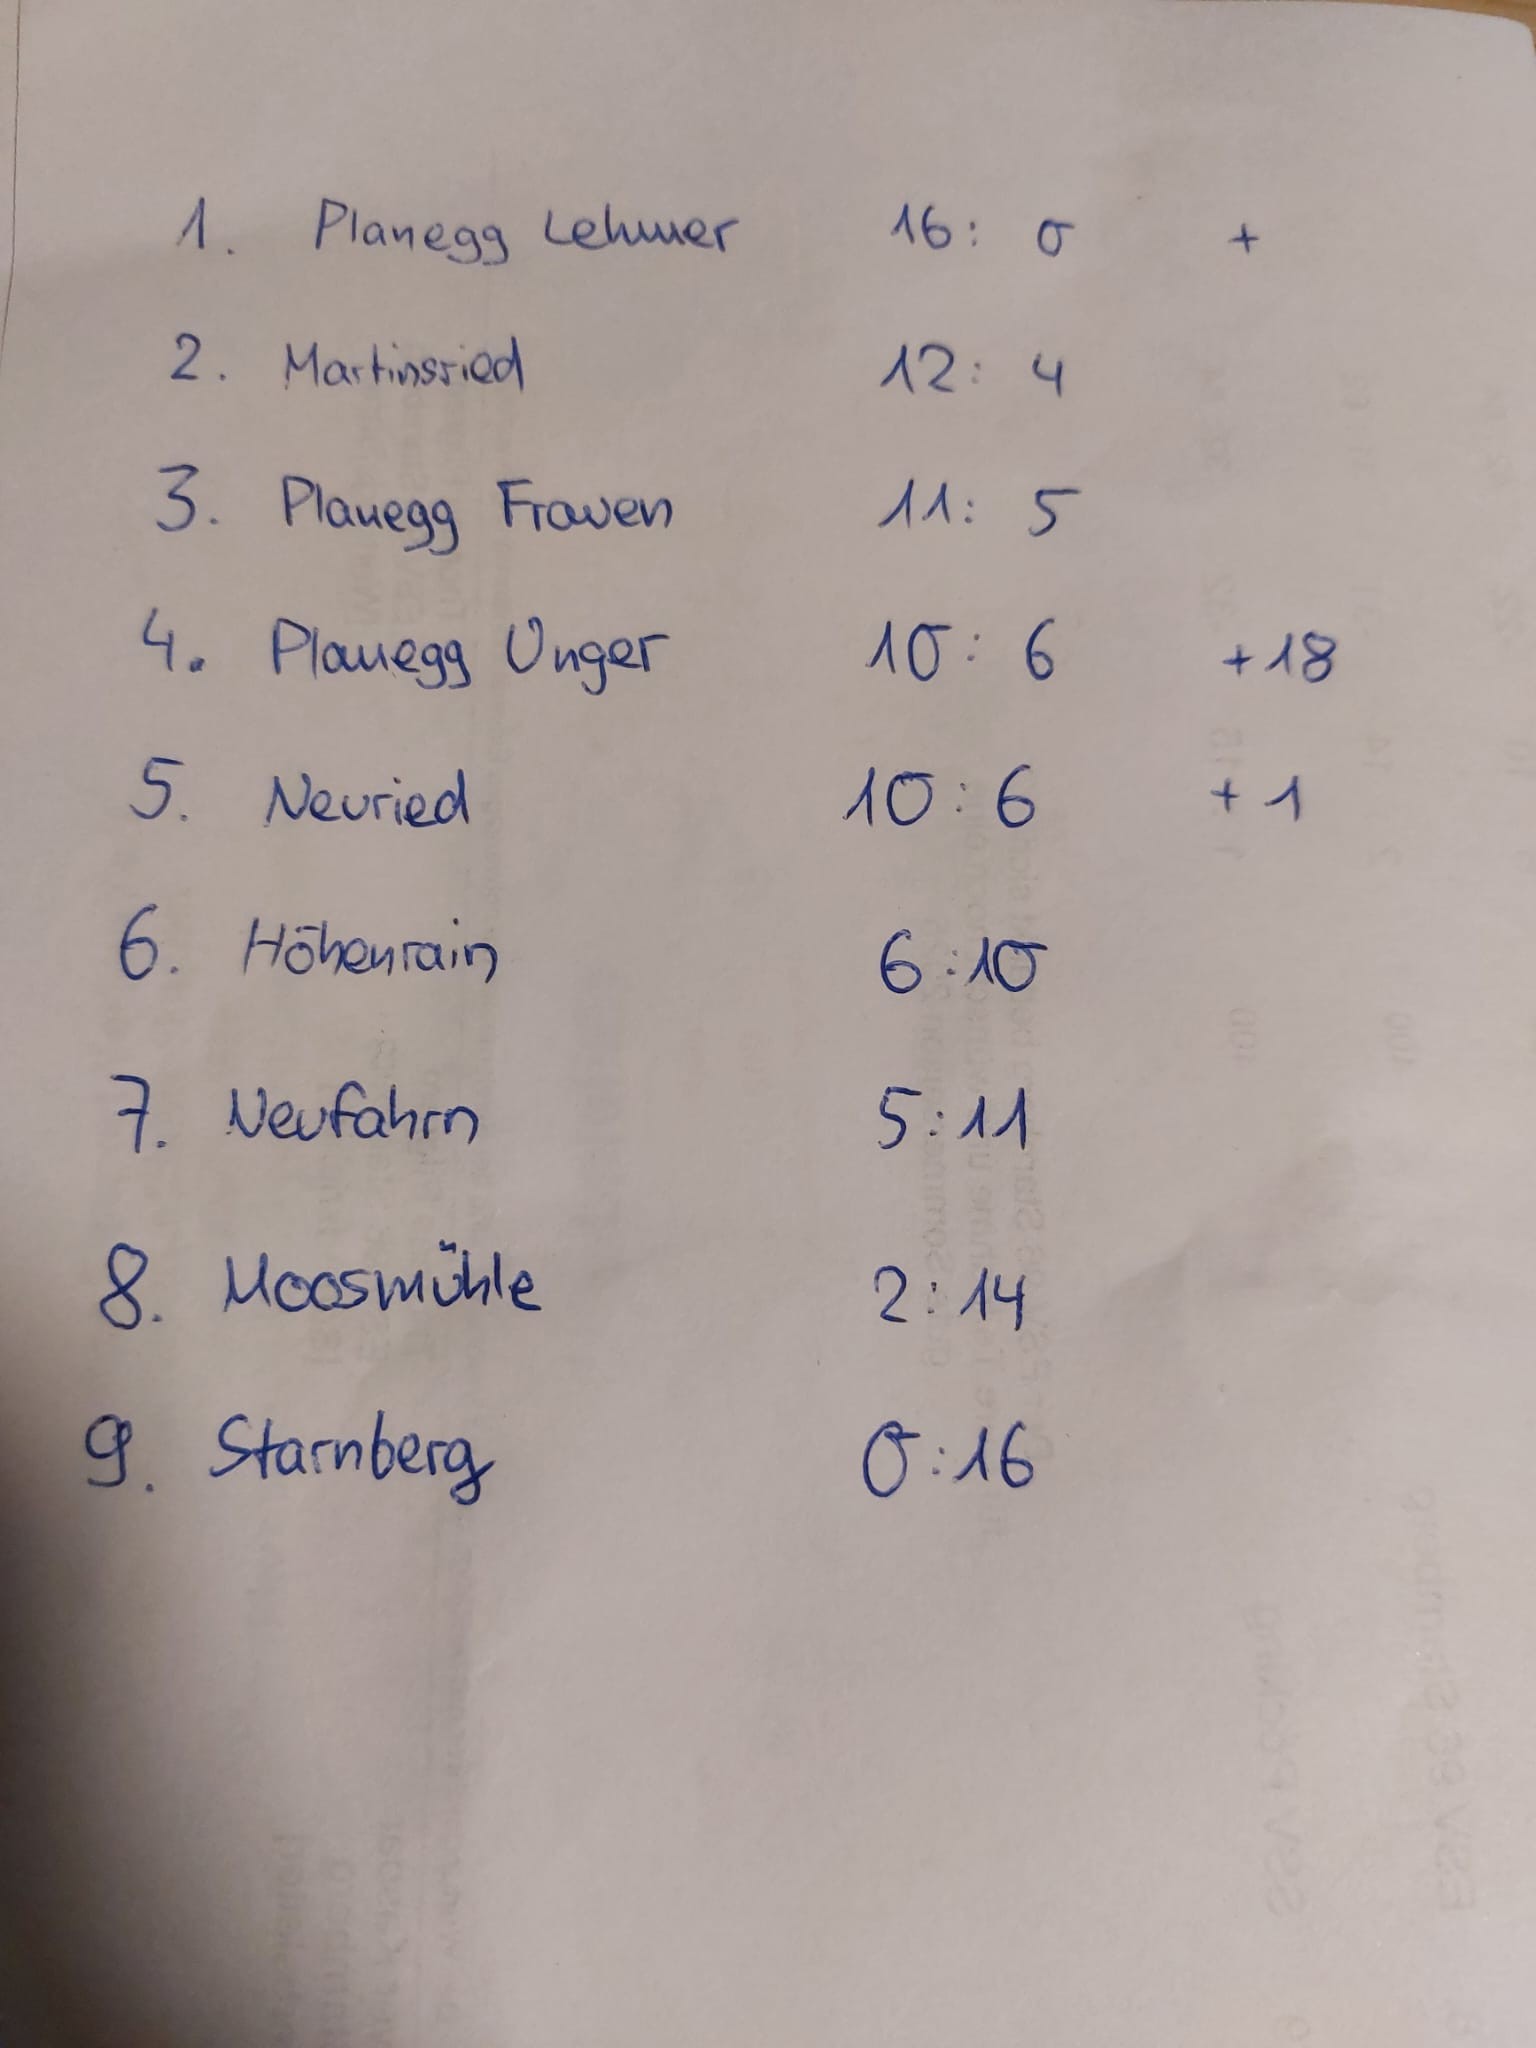 1. Planegg Lehmer 16: 0 +
2. Martinsried 12: 4
3. Planegg Frauen 11: 5
4. Planegg Unger 10: 6 +18
5. Neuried 10: 6 +1
6. Höhenrain 6:10
7. Neufahrn 5:11
8. Moosmühle 2:14
9. Starnberg 0:16